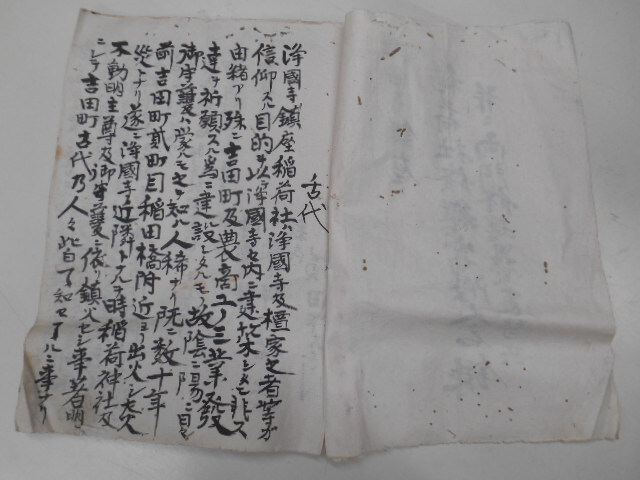 古代
浄國寺鎮座稲荷社ハ浄國寺及檀家之者等ガ
信仰スル目的ヲ以浄國寺内ニ建設シタルニ非ス
由緒アリ殊ニ吉田町及農商工ノ三業發
達ヲ祈願スル為ニ建設シタルモノ故陰ニ陽ニ日々
御守護ハ蒙ルモ之ヲ知ル人稀ナリ既ニ数十年
前吉田町貳町目稲田橋附近ヨリ出火シ大火
災トナリ遂ニ浄國寺ノ近隣トナル時稲荷神社及
不動明主尊及御守護ニ依リ鎮火セシ事若明
ニシテ吉田町古代乃人々皆了知セラルヽ事ナリ